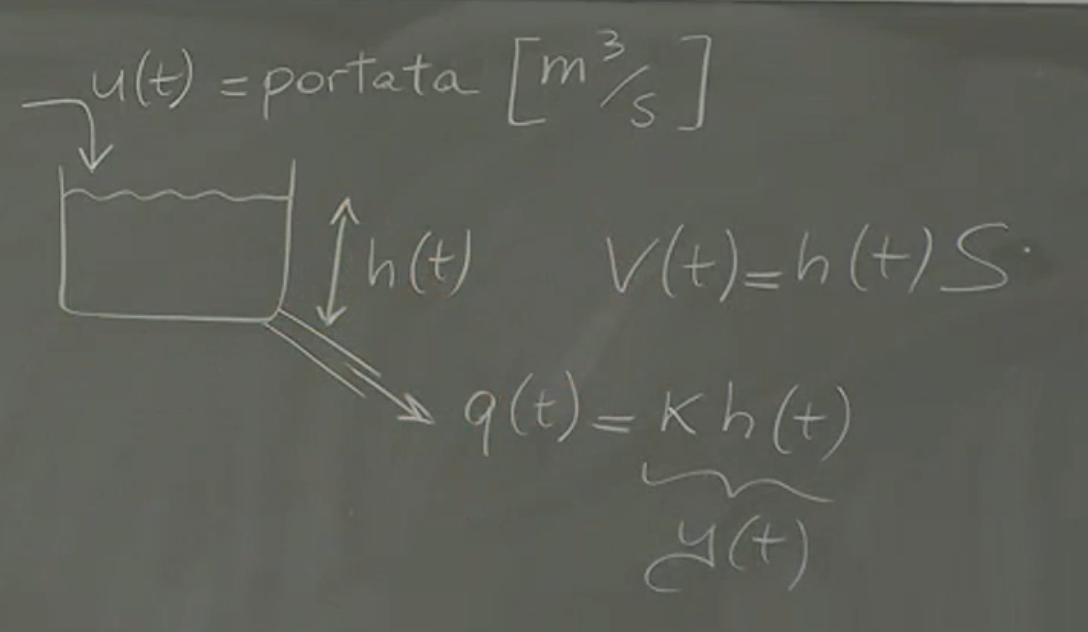 u(t) = portata [m³/s]
h(t) V(t)=h(t)S
q(t)=Kh(t)
y(t)